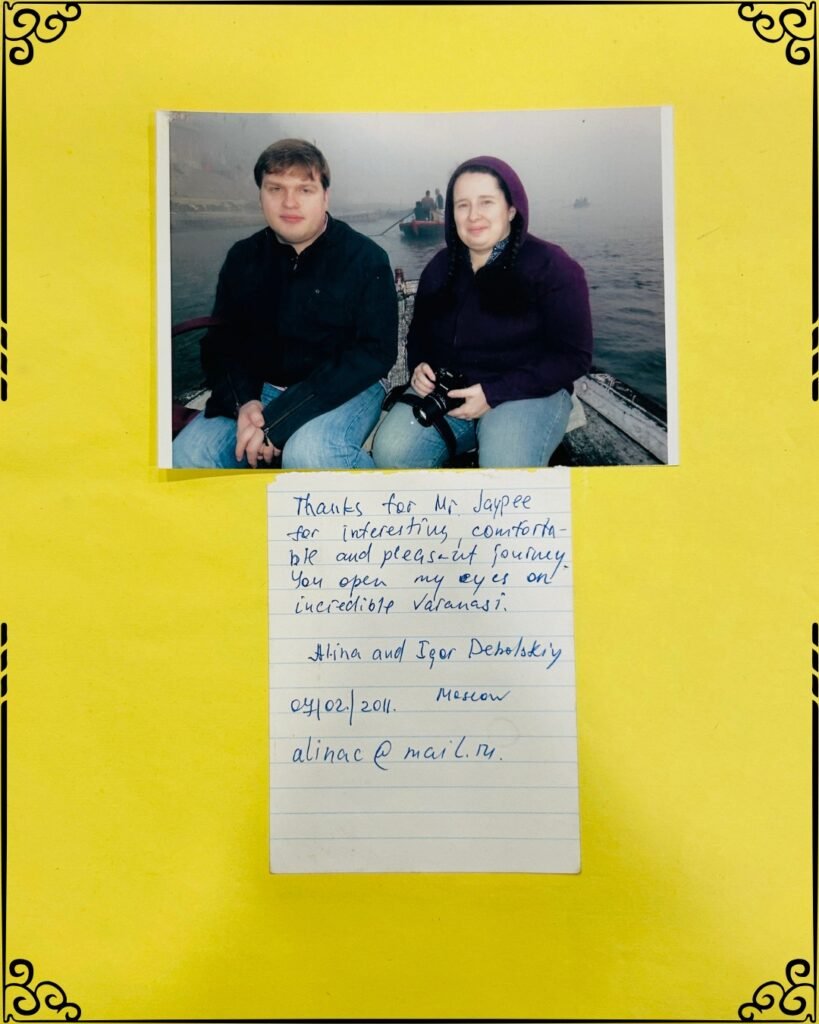 Thanks for Mr. Jaypee
for interesting, comforta-
ble and pleasant journey.
You open my eyes on
incredible Varanasi.
Alina and Igor Debolskiy
07/02./2011. Moscow
alinac@mail.ru.